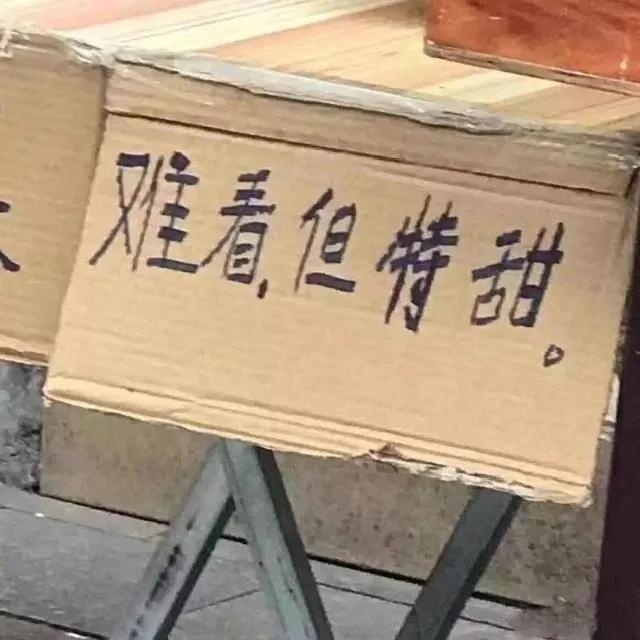 难看,但特甜。